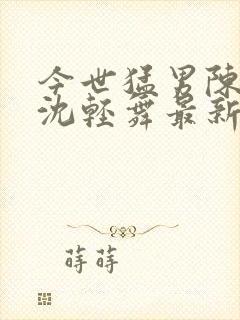 今世猛男陳
沈輕舞最新
蒔蒔